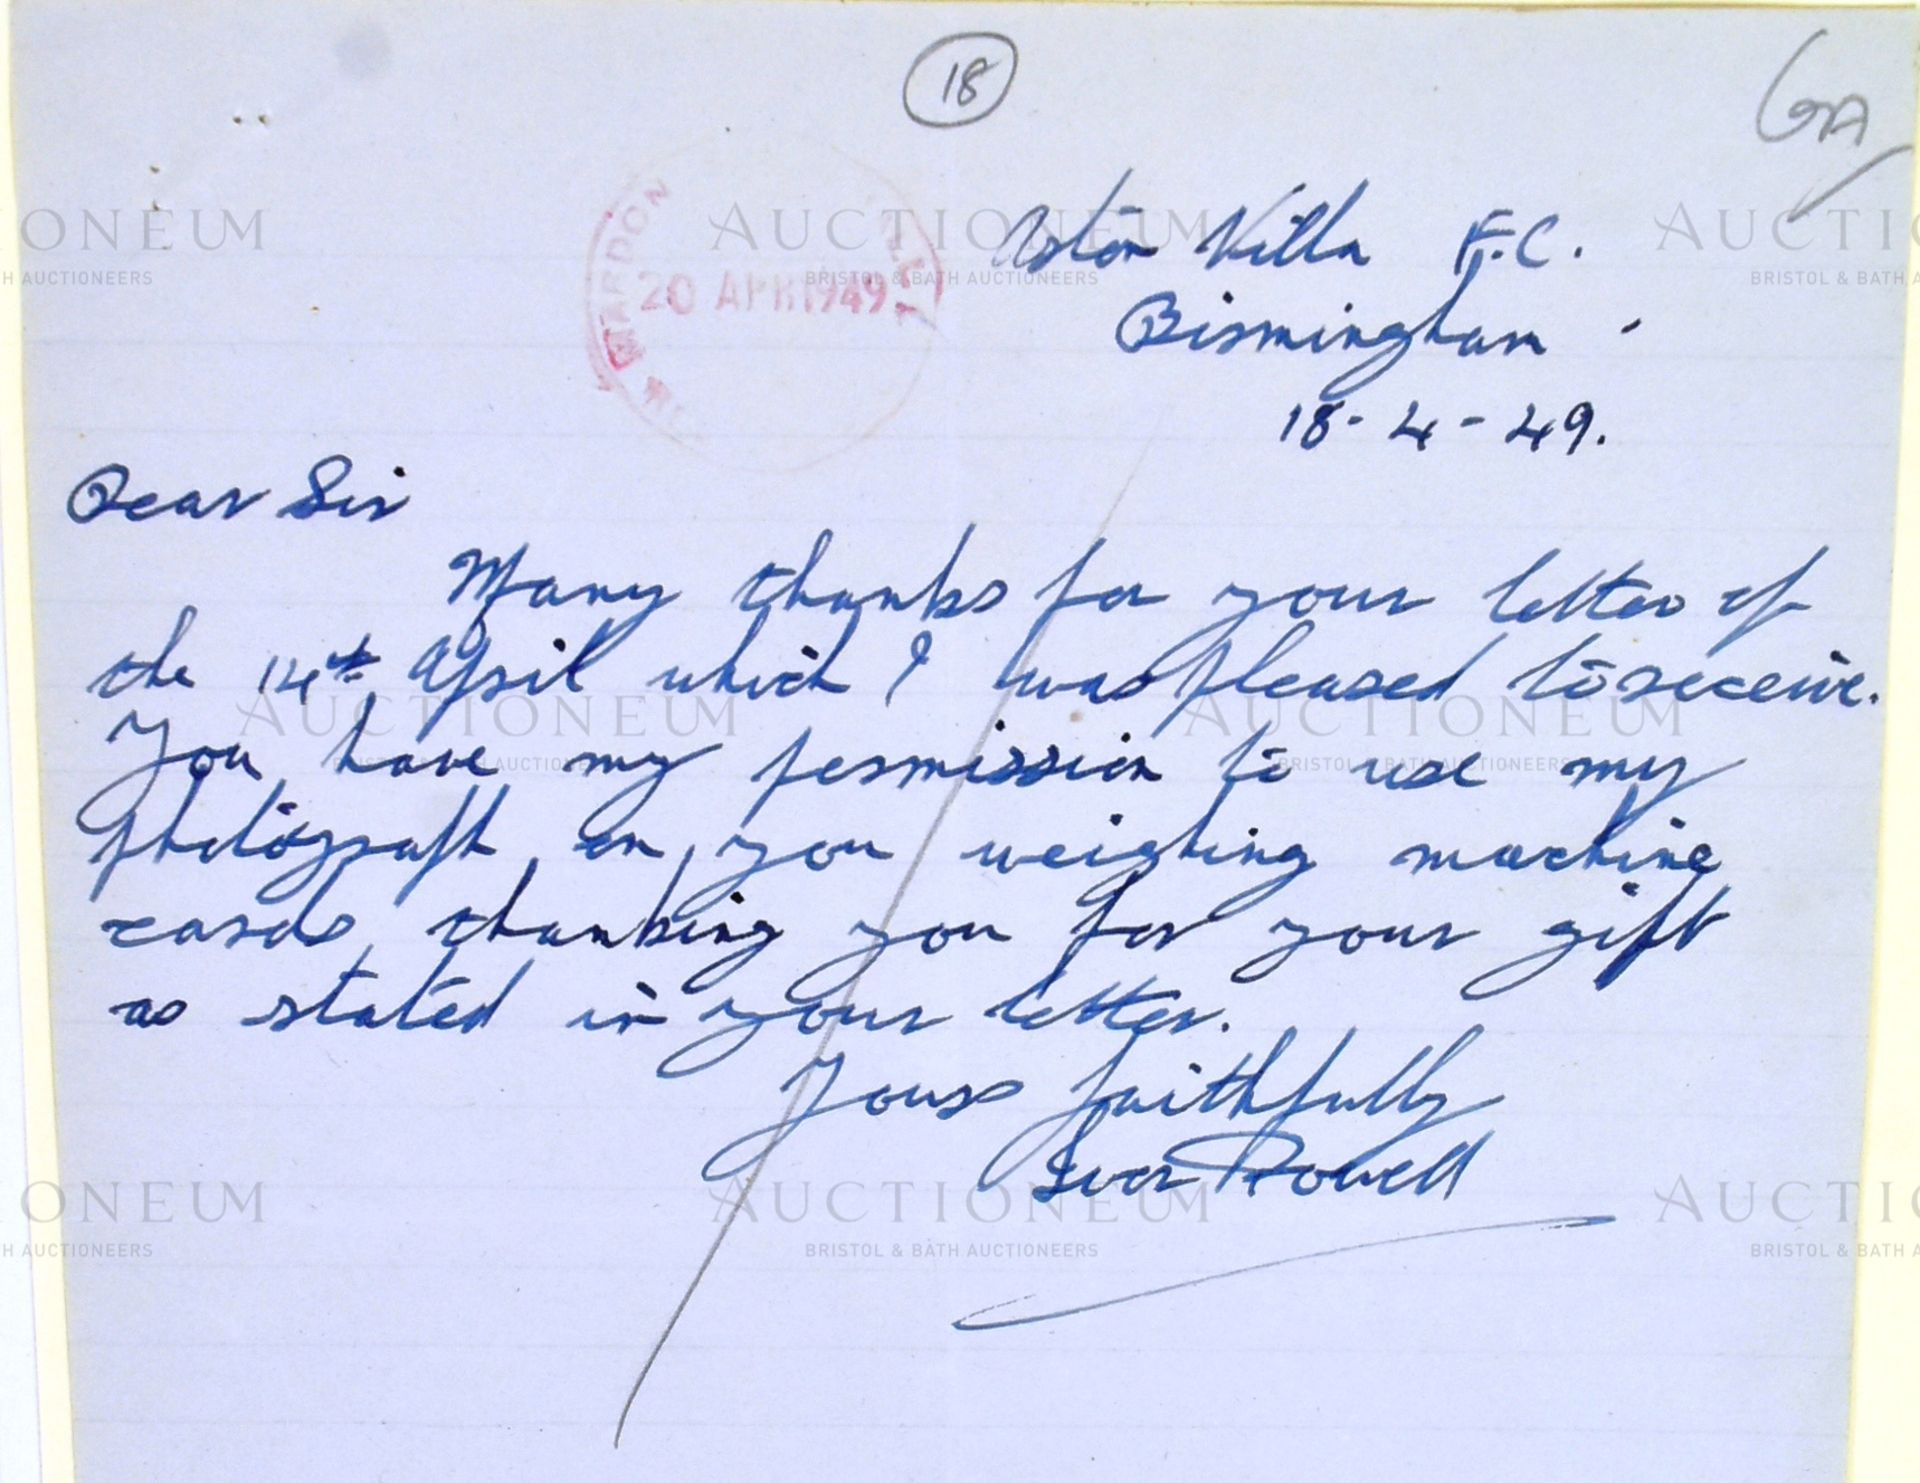 18
GA
Aston Villa F.C.
MARDON
20 APR 1949
Birmingham.
18-4-49.
Dear Sir
Many thanks for your letter of
the 14th April which I was pleased to receive.
You have my permission to use my
photograph on you weighing machine
cards, thanking you for your gift
as stated in your letter.
Yours faithfully
Ivor Powell
AUCTIONEUM
BRISTOL & BATH AUCTIONEERS